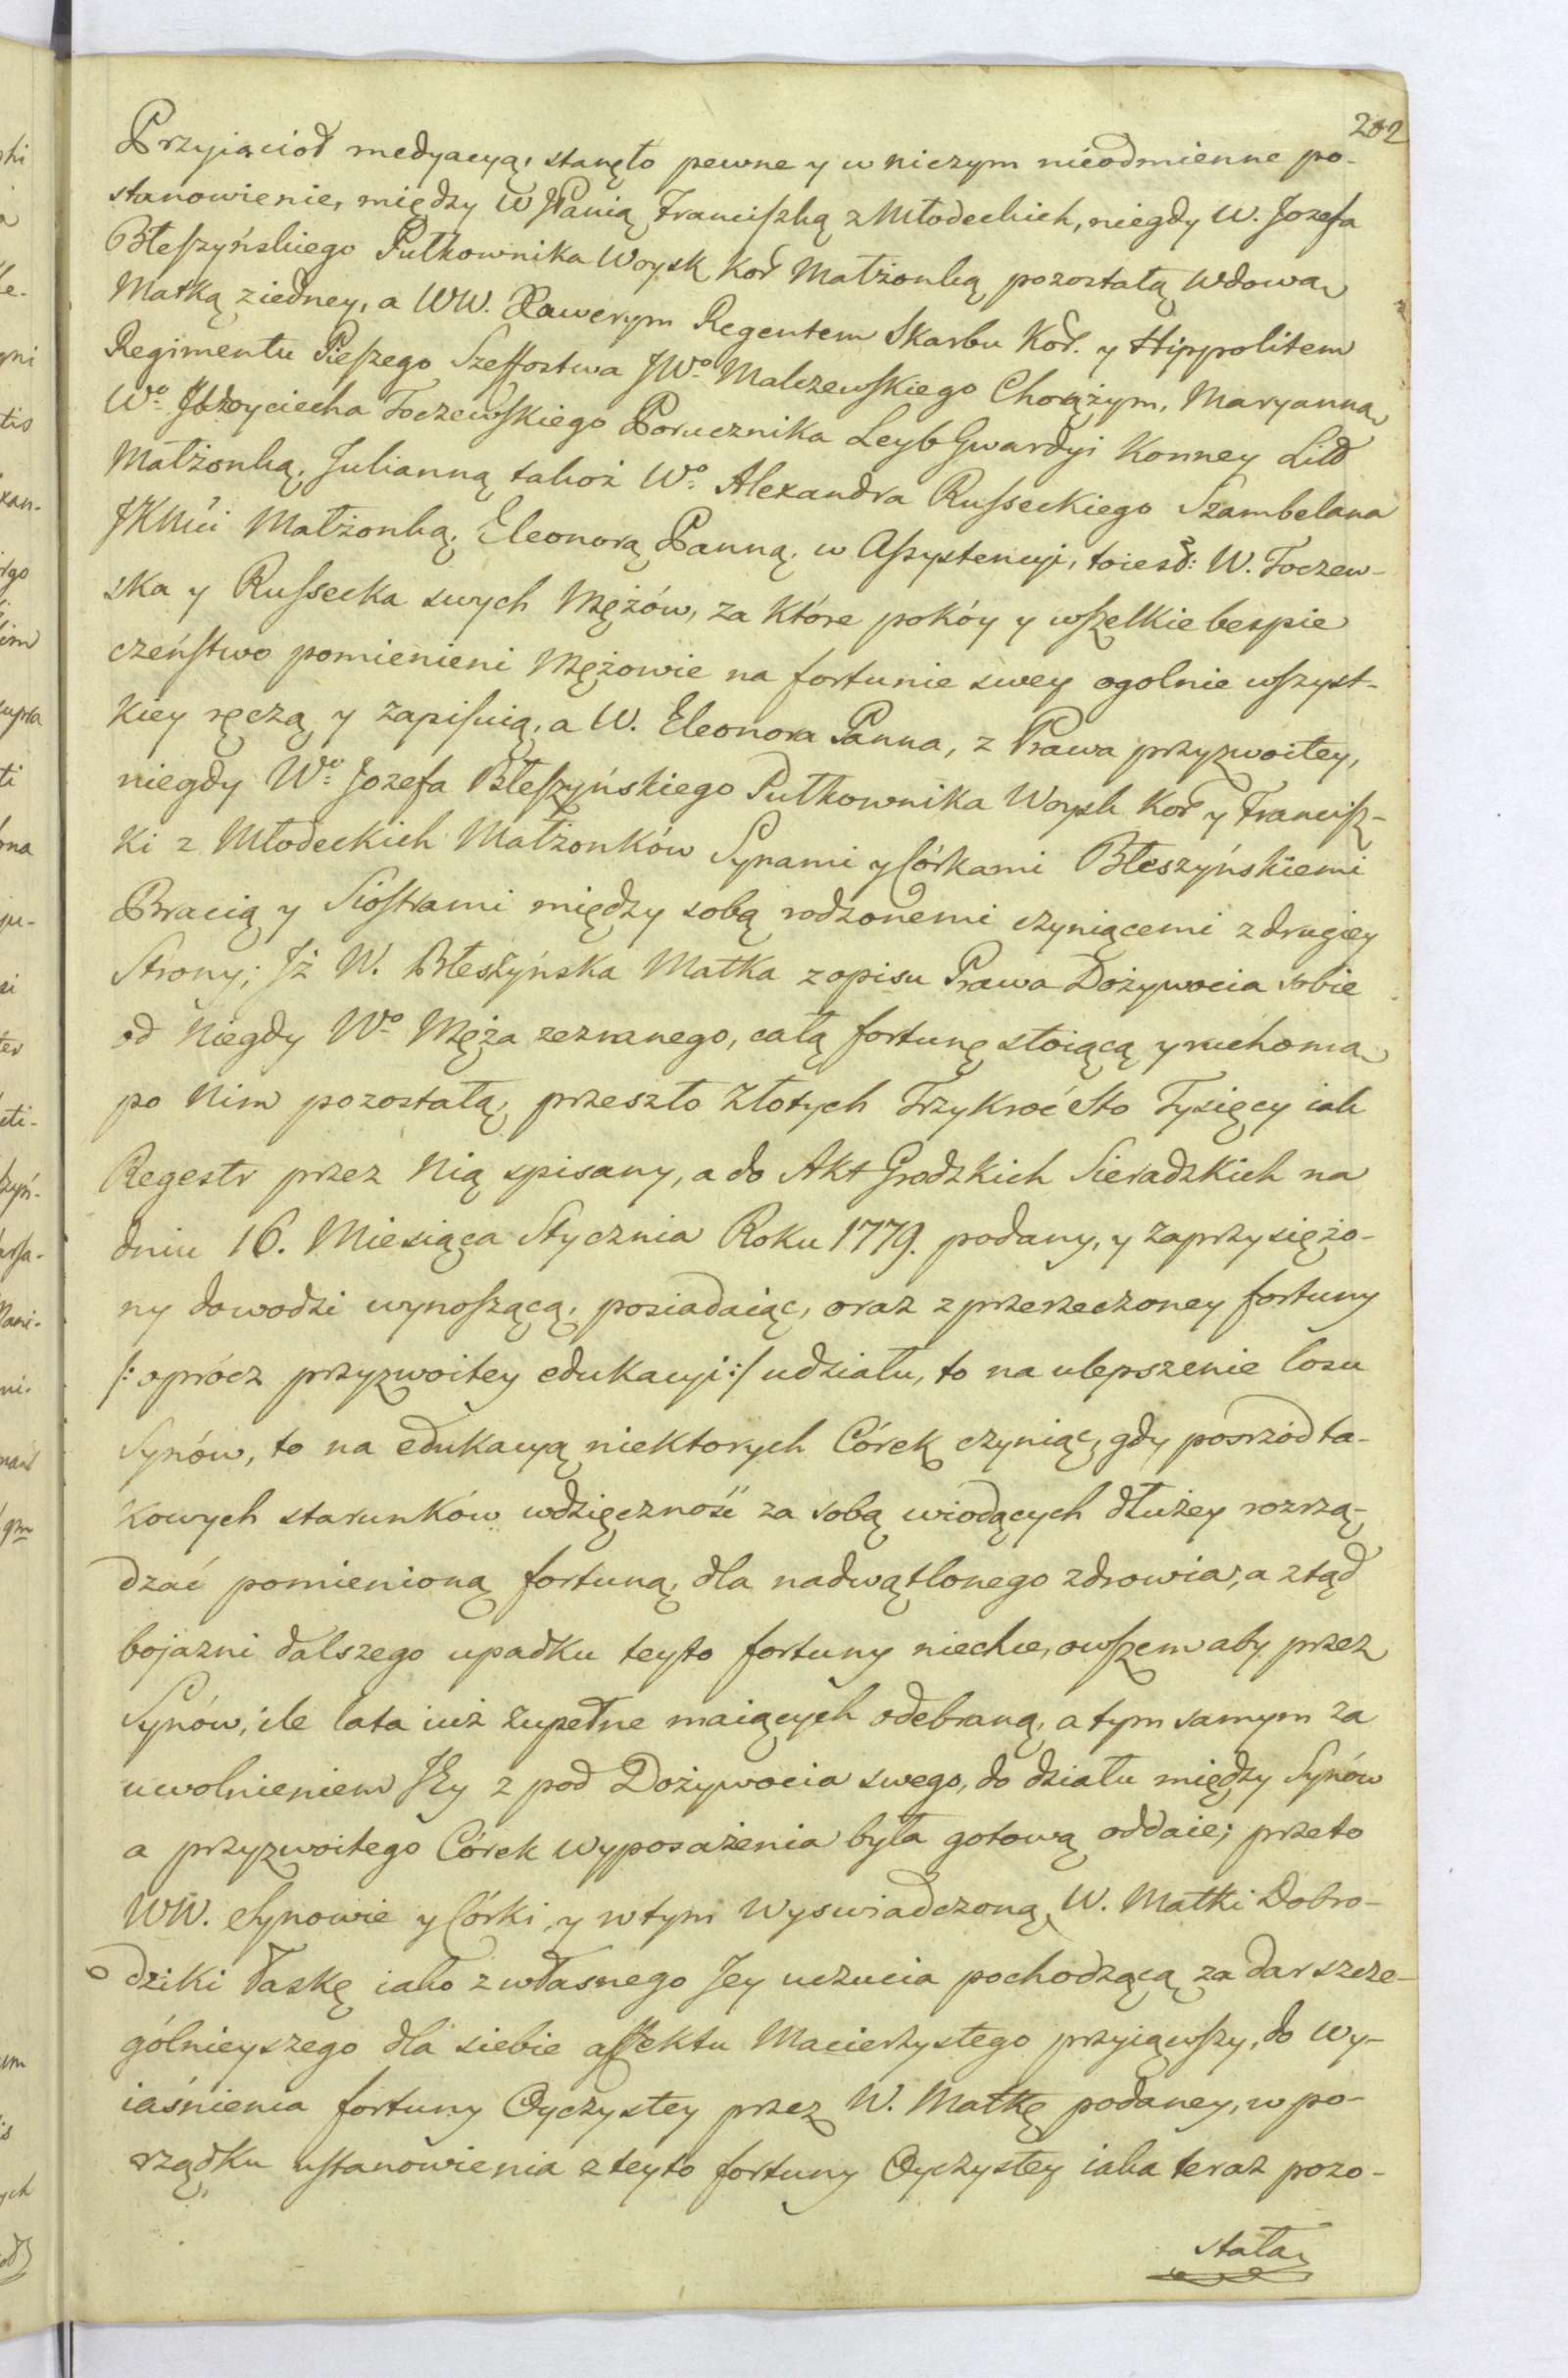 202
Przyiacioł medyacyą, stanęło pewne y w niczym nieodmienne po-
stanowienie, między W JPanią Franciſzką z Młodeckich, niegdy W. Jozefa
Błeſzyńskiego Pułkownika Woysk Kor Małżonką pozostałą Wdową
Matką z iedney, a WW. Xawerym Regentem Skarbu Kor. y Hippolitem
Regimentu Pieſzego Szeffostwa JWo Malczewſkiego Chorążym, Maryanną
Wo Woyciecha Toczewſkiego Porucznika Leyb Gwardyi Konney Litt
Małżonką, Julianną takoż Wo Alexandra Ruſseckiego Szambelana
JKMci Małżonką, Eleonorą Panną, w Aſsystencyi, toiest: W. Toczew-
ska y Ruſsecka swych Mężów, za które pokóy y wſzelkie bespie
czeńſtwo pomienieni Mężowie na fortunie swey ogolnie wſzyst-
kiey ręczą y zapiſuią, a W. Eleonora Panna, z Prawa przyzwoitey,
niegdy Wo Jozefa Błeſzyńskiego Pułkownika Woysk Kor y Franciſz-
ki z Młodeckich Małżonków Synami y Córkami Błeszyńskiemi
Bracią y Sioſtrami między sobą rodzonemi czyniącemi z drugiey
Strony; Jż W. Błeszyńska Matka z opisu Prawa Dożywocia sobie
od Niegdy Wo Męża zeznanego, całą fortunę stoiącą y ruchomą
po Nim pozostałą, przeszło Złotych Trzykroć Sto Tysięcy iak
Regestr przez Nią spisany, a do Akt Grodzkich Sieradzkich na
dniu 16. Miesiąca Stycznia Roku 1779. podany, y zaprzysiężo-
ny dowodzi wynoſzącą, posiadaiąc, oraz z przerzeczoney fortuny
/: oprócz przyzwoitey edukacyi :/ udziału, to na ulepszenie losu
Synów, to na edukacyą niektorych Córek czyniąc, gdy posrzod ta-
kowych starunków wdzięczność za sobą wiodących dłużey rozrzą-
dzać pomienioną fortuną, dla nadwątlonego zdrowia, a ztąd
bojazni dalszego upadku teyto fortuny niechce, owſzem aby przez
Synów, ile lata iuż zupełne maiących odebraną, a tym samym za
uwolnieniem Jey z pod Dożywocia swego, do działu między Synów
a przyzwoitego Córek wyposażenia była gotową oddaie; przeto
WW. Synowie y Córki, y w tym Wyswiadczoną W. Matki Dobro-
dziki łaskę iako z własnego Jey uczucia pochodzącą za dar szcze-
gólnieyszego dla siebie affektu Macierzystego przyiąwſzy, do wy-
iaśnienia fortuny Oyczystey przez W. Matkę podaney, w po-
rządku uſtanowienia z teyto fortuny Oyczystey iaka teraz pozo-
stała